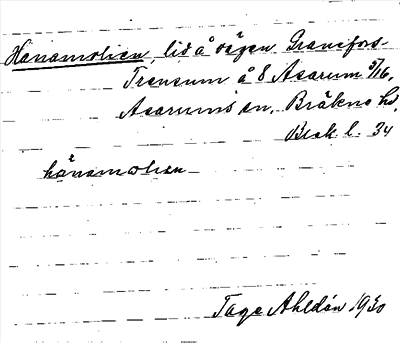 Hanamolien, lid å vägen Granefors-
Trensum å 8 Asarum 5/16,
Asarums sn, Bräkne hd,
Blek. l. 34
hånamolien
Tage Ahldén 1930